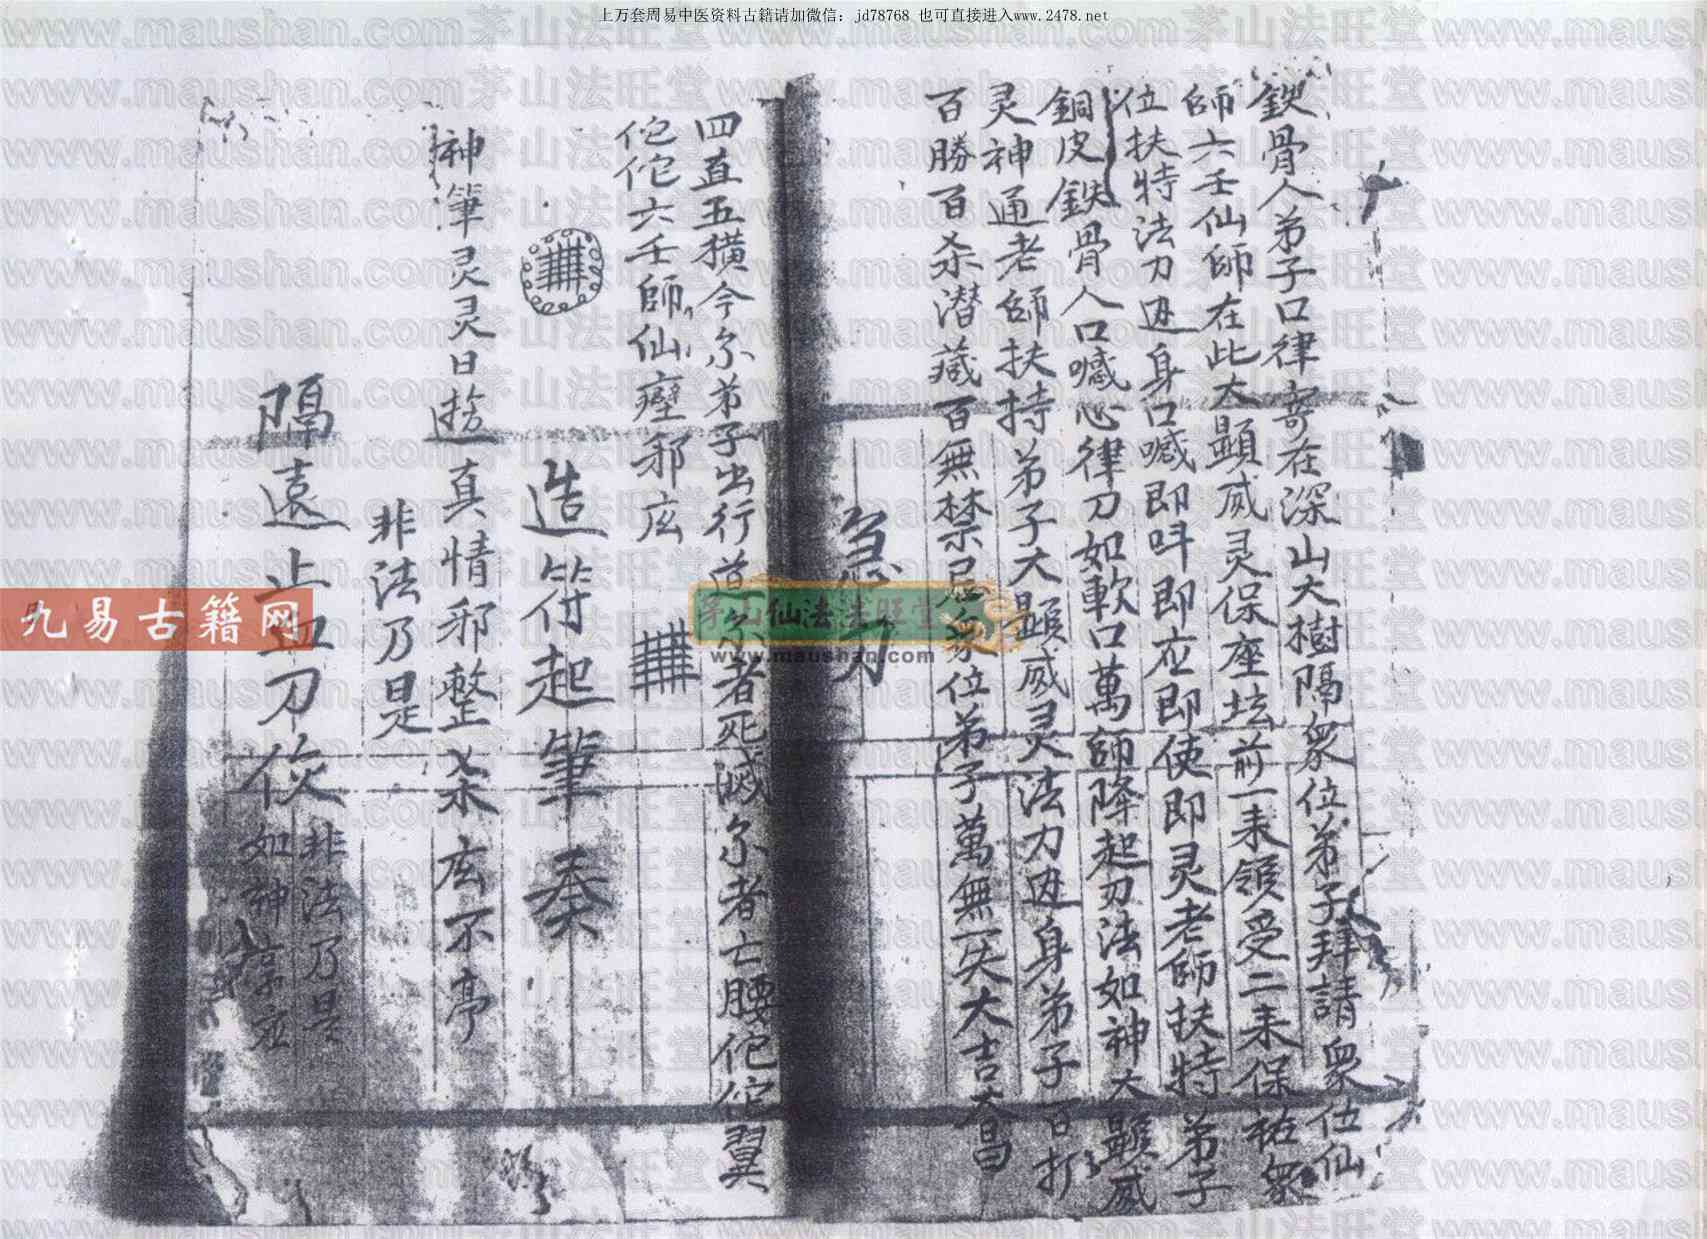 上万套周易中医资料古籍请加微信：jd78768 也可直接进入www.2478.net
鉄骨人弟子口律寄在深山大樹隔衆位弟子拜請衆位仙
師六壬仙師在此大顕威灵保座坛前一耒領受二耒保祐衆
位扶特法刀进身口喊即呌即应即使即灵老師扶特弟子
銅皮鉄骨人口喊心律刀如軟口萬師降起刃法如神大顕威
灵神通老師扶持弟子大顕威灵法力进身弟子百打
百勝百杀潜藏百無禁忌衆位弟子萬無一失大吉大昌
急刀
四直五横今尔弟子出行道尔者死滅尔者亡腰佗佗翼
佗佗六壬師仙壓邪庅
造符起筆奏
神筆灵灵日遊真情邪整杀庅不亭
非法乃是
隔遠止血刀後
非法乃是
如神享应
茅山仙法法旺堂
www.maushan.com
九易古籍网
www.maushan.com茅山法旺堂